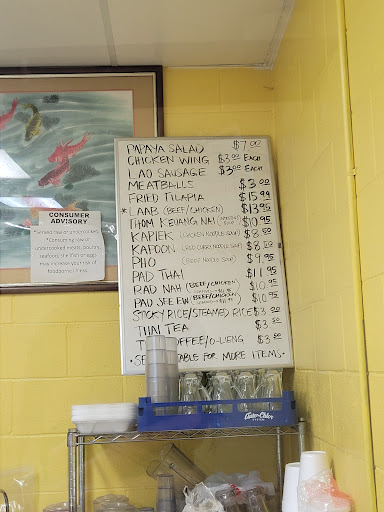 PAPAYA SALAD $7.00
CHICKEN WING $3.00 EACH
LAO SAUSAGE $3.00 EACH
MEATBALLS $3.00
FRIED TILAPIA $15.99
* LAAB (BEEF/CHICKEN) $13.95
THOM KEUANG NAI $10.95
KAPIEK (CHICKEN NOODLE SOUP) $8.50
KAPOON (RED CURRY NOODLE SOUP) $8.50
PHO (BEEF NOODLE SOUP) $9.95
PAD THAI $11.95
RAD NAH (BEEF/CHICKEN) $10.95
PAD SEE EW (BEEF/CHICKEN) $10.95
STICKY RICE/STEAMED RICE $3.50
THAI TEA $3.50
COFFEE/O-LIENG $3.50
TABLE FOR MORE ITEMS
CONSUMER
ADVISORY
"Consuming raw or
undercooked meats, poultry,
seafood, shellfish or eggs
may increase your risk of
foodborne illness.